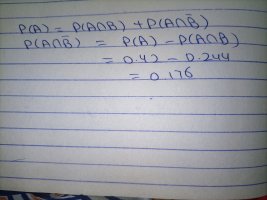 P(A) = P(A∩B) + P(A∩B̄)
P(A∩B̄) = P(A) - P(A∩B)
= 0.42 - 0.244
= 0.176